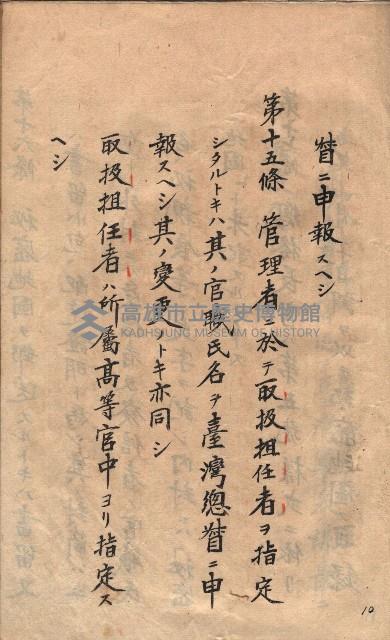 督ニ申報スヘシ
第十五條 管理者ニ於テ取扱担任者ヲ指定
シタルトキハ其ノ官職氏名ヲ臺灣總督ニ申
報スヘシ其ノ變更ノトキ亦同シ
取扱担任者ハ所屬高等官中ヨリ指定ス
ヘシ
高雄市立歷史博物館
KAOHSIUNG MUSEUM OF HISTORY
10